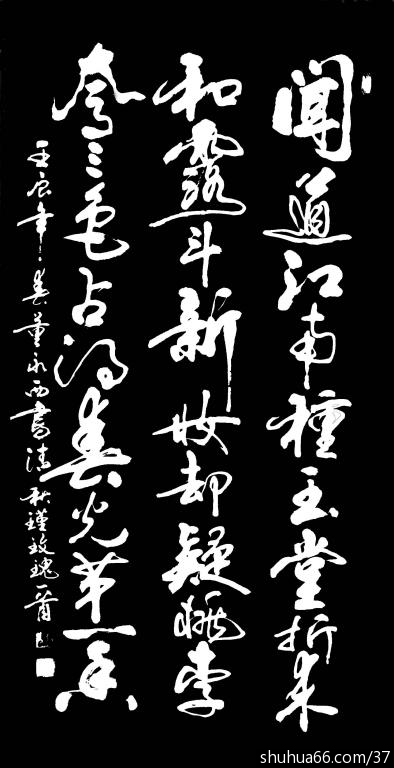 聞道江南種玉堂折来
和露斗新妝却疑桃李
夸三色占得春光第一香
壬辰年春董永西書清秋瑾玫瑰一首
shuhua66.com/37